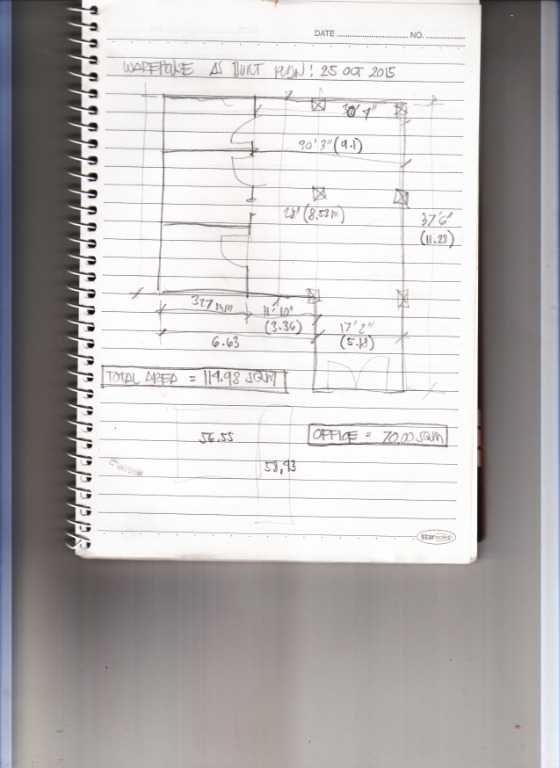 DATE ........................ NO. ............
WAREHOUSE AS BUILT PLAN: 25 OCT 2015
30'3" (9.1)
28' (8.53m)
37'6"
(11.23)
327 mm
11'10"
(3.36)
17'2"
(5.18)
6.63
TOTAL AREA = 114.98 SQM
56.55
OFFICE = 70.00 SQM
58,43
star notes